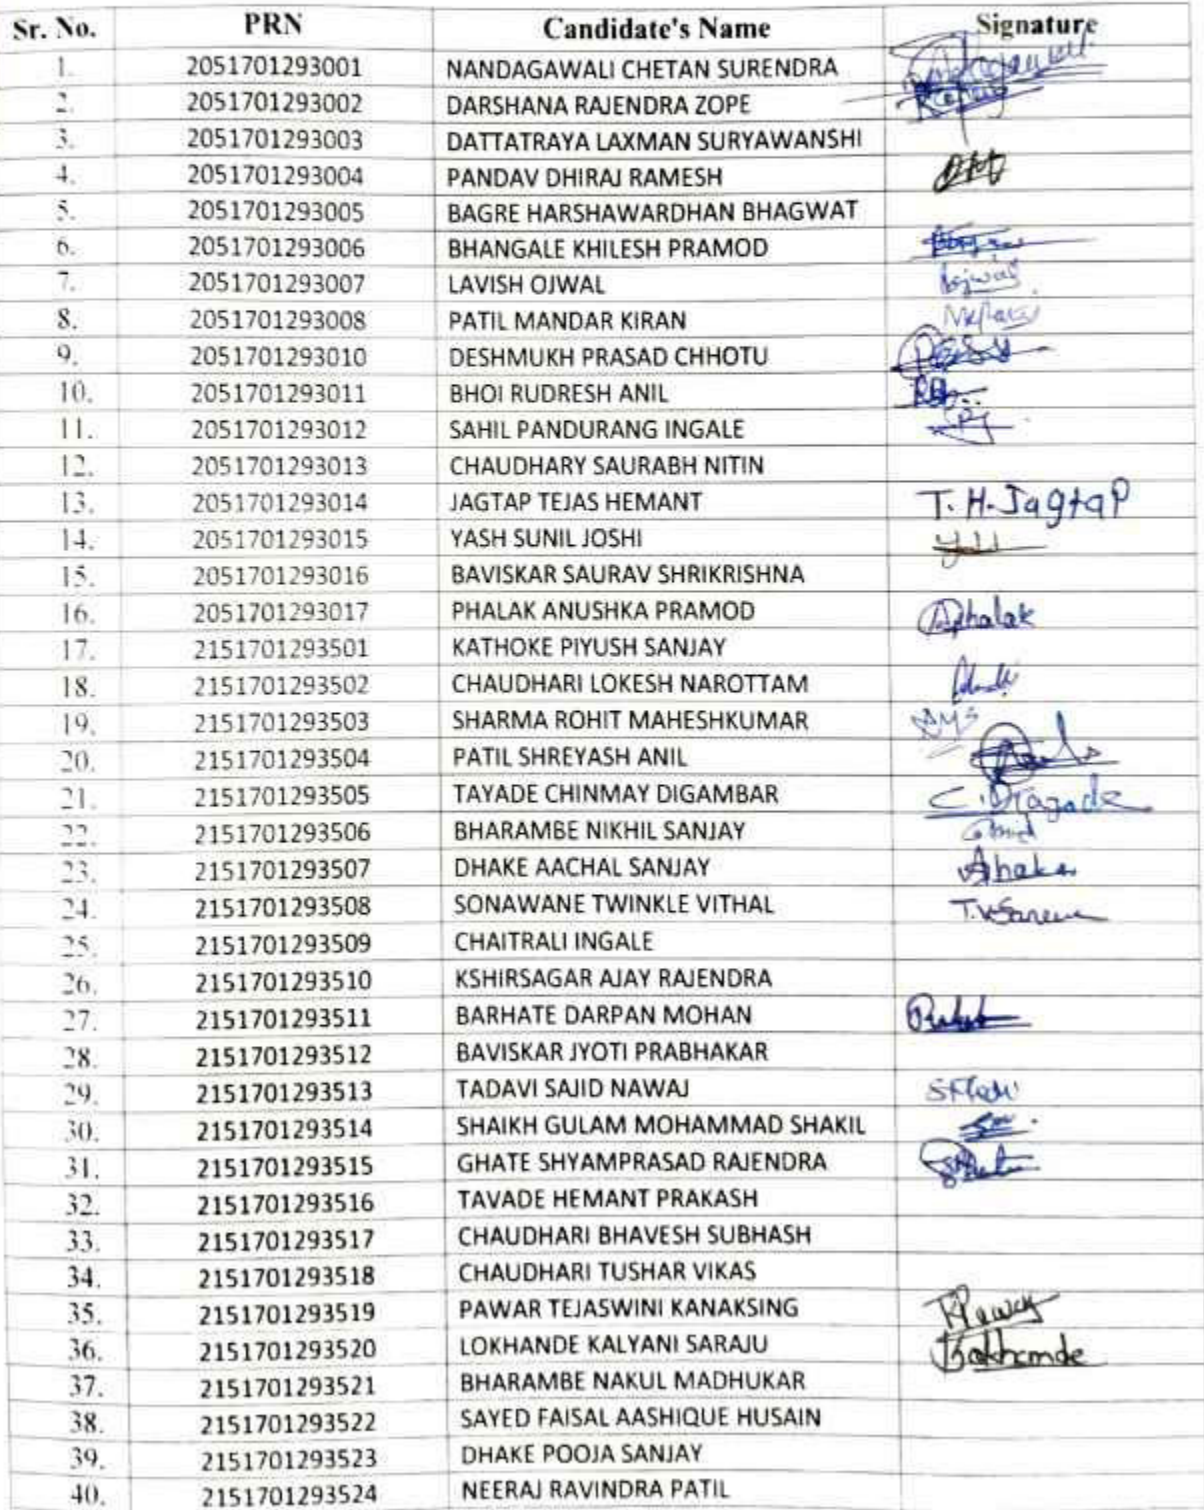 Sr. No. PRN Candidate's Name Signature
1. 2051701293001 NANDAGAWALI CHETAN SURENDRA
2. 2051701293002 DARSHANA RAJENDRA ZOPE
3. 2051701293003 DATTATRAYA LAXMAN SURYAWANSHI
4. 2051701293004 PANDAV DHIRAJ RAMESH
5. 2051701293005 BAGRE HARSHAWARDHAN BHAGWAT
6. 2051701293006 BHANGALE KHILESH PRAMOD
7. 2051701293007 LAVISH OJWAL
8. 2051701293008 PATIL MANDAR KIRAN
9. 2051701293010 DESHMUKH PRASAD CHHOTU
10. 2051701293011 BHOI RUDRESH ANIL
11. 2051701293012 SAHIL PANDURANG INGALE
12. 2051701293013 CHAUDHARY SAURABH NITIN
13. 2051701293014 JAGTAP TEJAS HEMANT T. H. Jagtap
14. 2051701293015 YASH SUNIL JOSHI
15. 2051701293016 BAVISKAR SAURAV SHRIKRISHNA
16. 2051701293017 PHALAK ANUSHKA PRAMOD Aphalak
17. 2151701293501 KATHOKE PIYUSH SANJAY
18. 2151701293502 CHAUDHARI LOKESH NAROTTAM
19. 2151701293503 SHARMA ROHIT MAHESHKUMAR
20. 2151701293504 PATIL SHREYASH ANIL
21. 2151701293505 TAYADE CHINMAY DIGAMBAR
22. 2151701293506 BHARAMBE NIKHIL SANJAY
23. 2151701293507 DHAKE AACHAL SANJAY
24. 2151701293508 SONAWANE TWINKLE VITHAL
25. 2151701293509 CHAITRALI INGALE
26. 2151701293510 KSHIRSAGAR AJAY RAJENDRA
27. 2151701293511 BARHATE DARPAN MOHAN
28. 2151701293512 BAVISKAR JYOTI PRABHAKAR
29. 2151701293513 TADAVI SAJID NAWAJ
30. 2151701293514 SHAIKH GULAM MOHAMMAD SHAKIL
31. 2151701293515 GHATE SHYAMPRASAD RAJENDRA
32. 2151701293516 TAVADE HEMANT PRAKASH
33. 2151701293517 CHAUDHARI BHAVESH SUBHASH
34. 2151701293518 CHAUDHARI TUSHAR VIKAS
35. 2151701293519 PAWAR TEJASWINI KANAKSING
36. 2151701293520 LOKHANDE KALYANI SARAJU
37. 2151701293521 BHARAMBE NAKUL MADHUKAR
38. 2151701293522 SAYED FAISAL AASHIQUE HUSAIN
39. 2151701293523 DHAKE POOJA SANJAY
40. 2151701293524 NEERAJ RAVINDRA PATIL